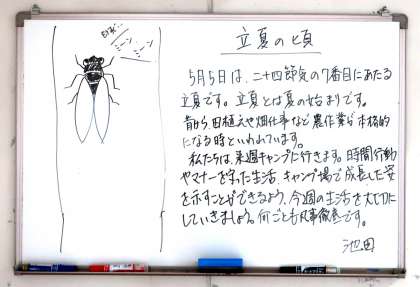 ミーン
ミーン
立夏の頃
5月5日は、二十四節気の7番目にあたる
立夏です。立夏とは夏の始まりです。
昔から、田植えや畑仕事など農作業が本格的
になる時といわれています。
私たちは、来週キャンプに行きます。時間行動
やマナーを守った生活、キャンプ場で成長した姿
を示すことができるよう、今週の生活を大切に
していきましょう。何ごとも凡事徹底です。
池田